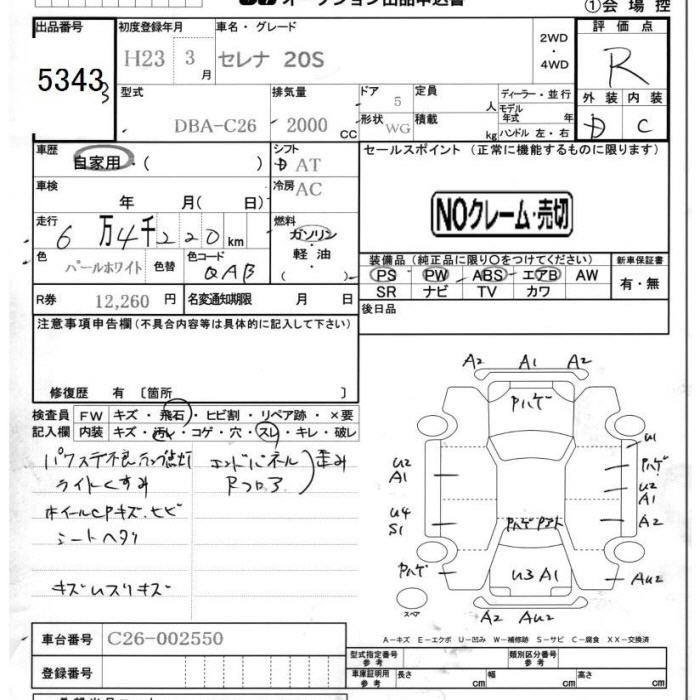 オークション出品申込書
①会 場 控
出品番号
初度登録年月
車名・グレード
評 価 点
5343
H23 3月
セレナ 20S
2WD
・
4WD
R
型式
排気量
ドア
定員
ディーラー・並行
外 装 内 装
DBA-C26
2000 CC
5
人
モデル
年式 年
形状 WG
積載 kg
ハンドル 左・右
D C
車歴
自家用・( )
シフト
AT
セールスポイント (正常に機能するものに限ります)
車検
年 月( 日)
冷房 AC
NOクレーム・売切
走行
6万4千220km
燃料
ガソリン
・
軽 油
・
( )
色
パールホワイト
色替
色コード
QAB
装備品(純正品に限り○をつけてください)
新車保証書
PS PW ABS エアB AW
有・無
SR ナビ TV カワ
R券 12,260 円
名変通知期限 月 日
後日品
注意事項申告欄(不具合内容等は具体的に記入して下さい)
修復歴 有 〔箇所 〕
検査員 FW キズ・飛石・ヒビ割・リペア跡・×要
記入欄 内装 キズ・汚レ・コゲ・穴・スレ・キレ・破レ
パワステ不良ランプ点灯
エンドパネル
歪み
ライトくすみ
Rフロア
ホイールCPキズ.ヒビ
シートヘタリ
キズムスリキズ
A2 A1 A2
Pハゲ
U1
U2
A1
Pハゲ
U2
A1
U4
S1
A2
Pハゲ
U3 A1
AU2
A2 AU2
スペア
A-キズ E-エクボ U-凹み W-補修跡 S-サビ C-腐食 XX-交換済
車台番号 C26-002550
型式指定番号
参考
類別区分番号
参考
登録番号
車庫証明用
参考
長さ cm 幅 cm 高さ cm